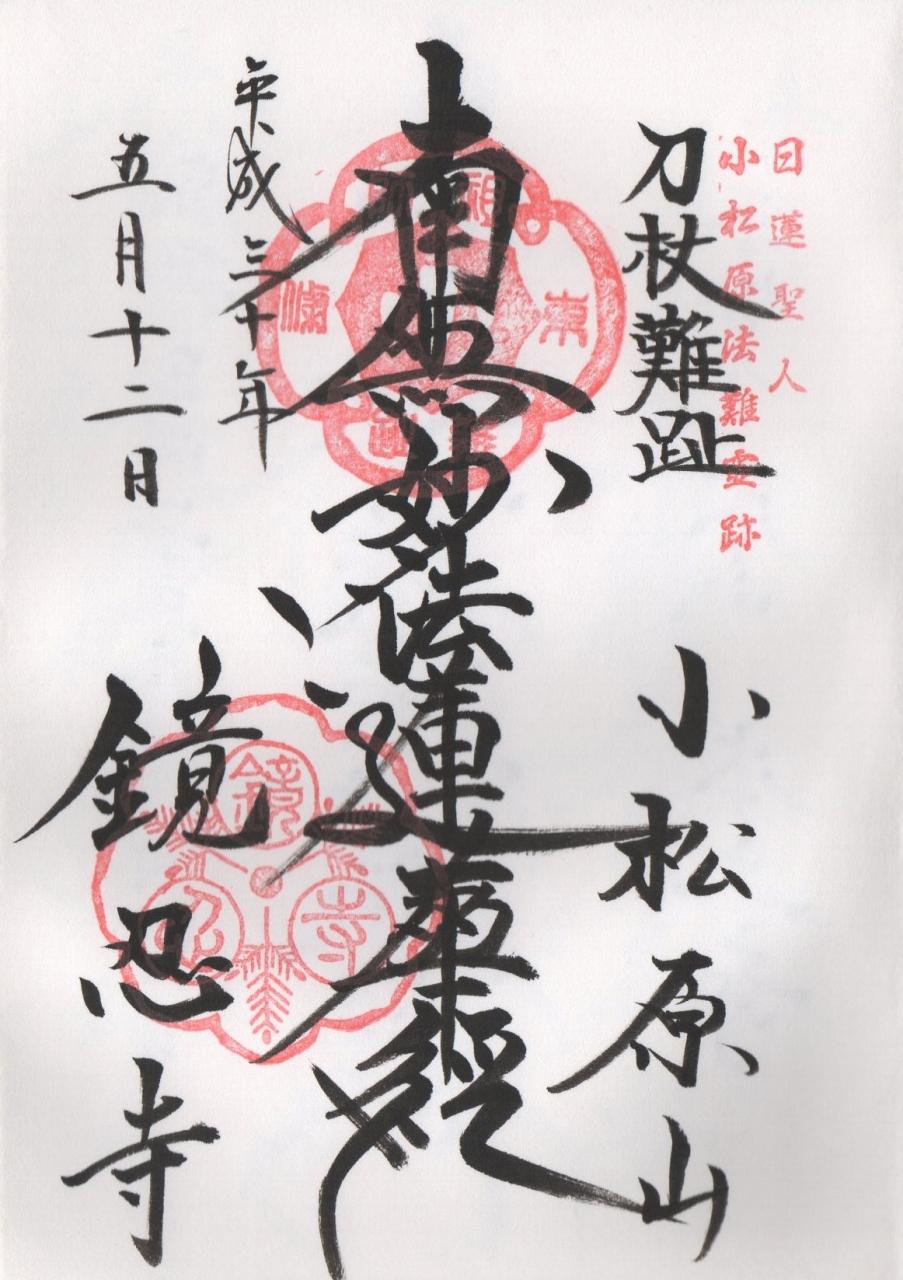 日蓮聖人
小松原法難霊跡
刀杖難跡
小松原山
南無妙法蓮華経
平成三十年
五月十二日
鏡忍寺
鏡
忍
寺